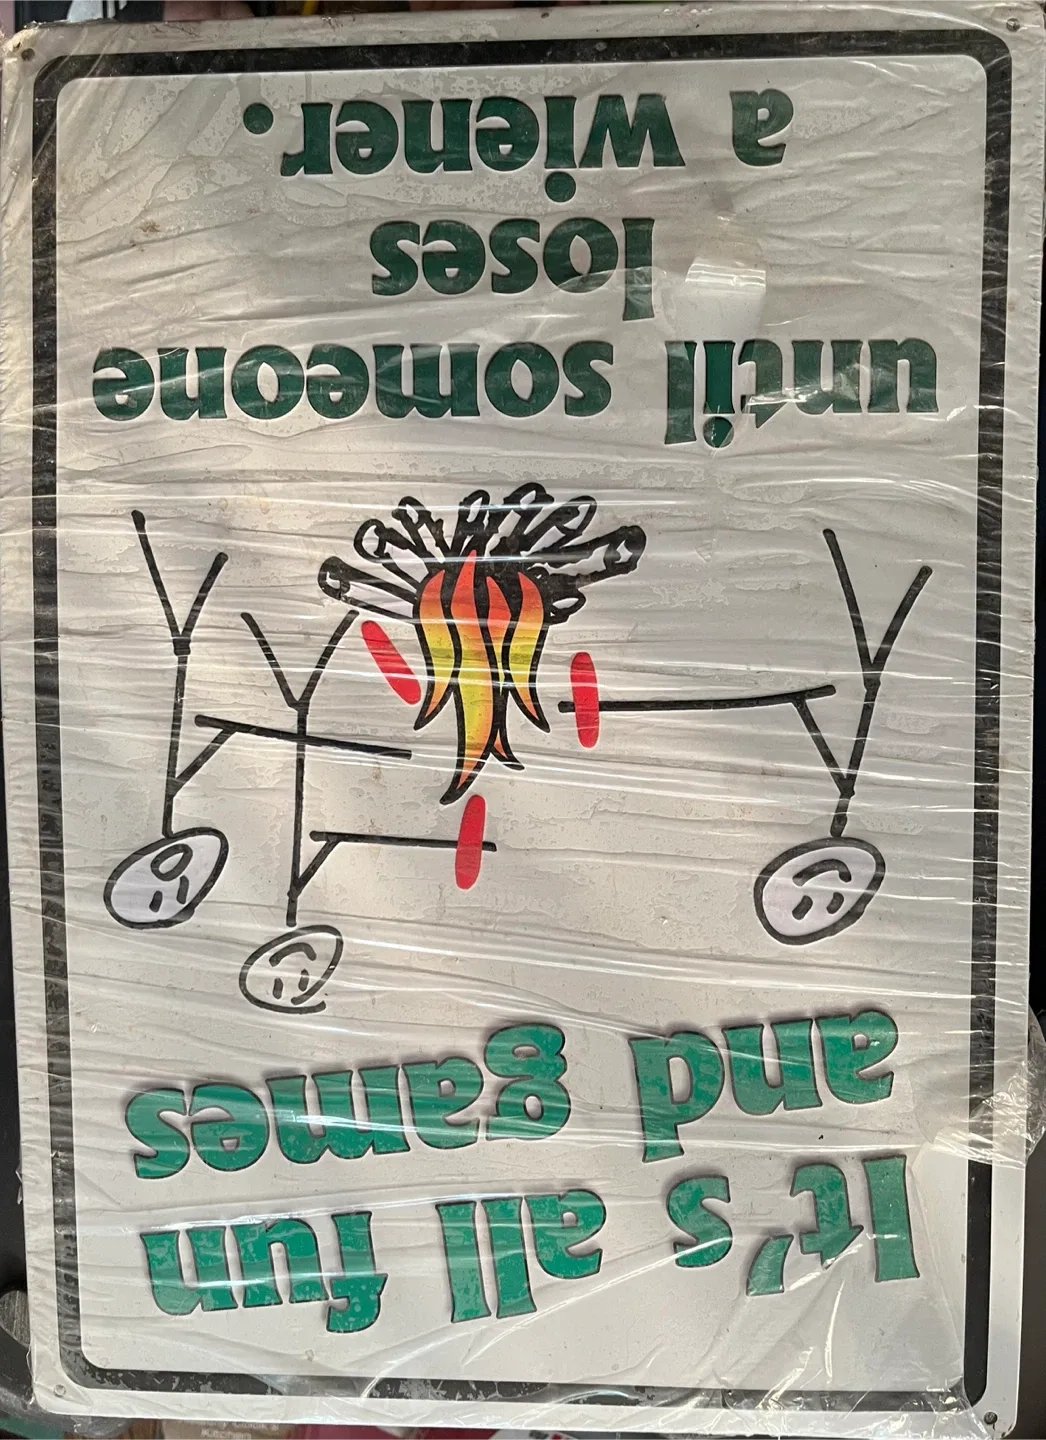 It's all fun
and games
until someone
loses
a wiener.